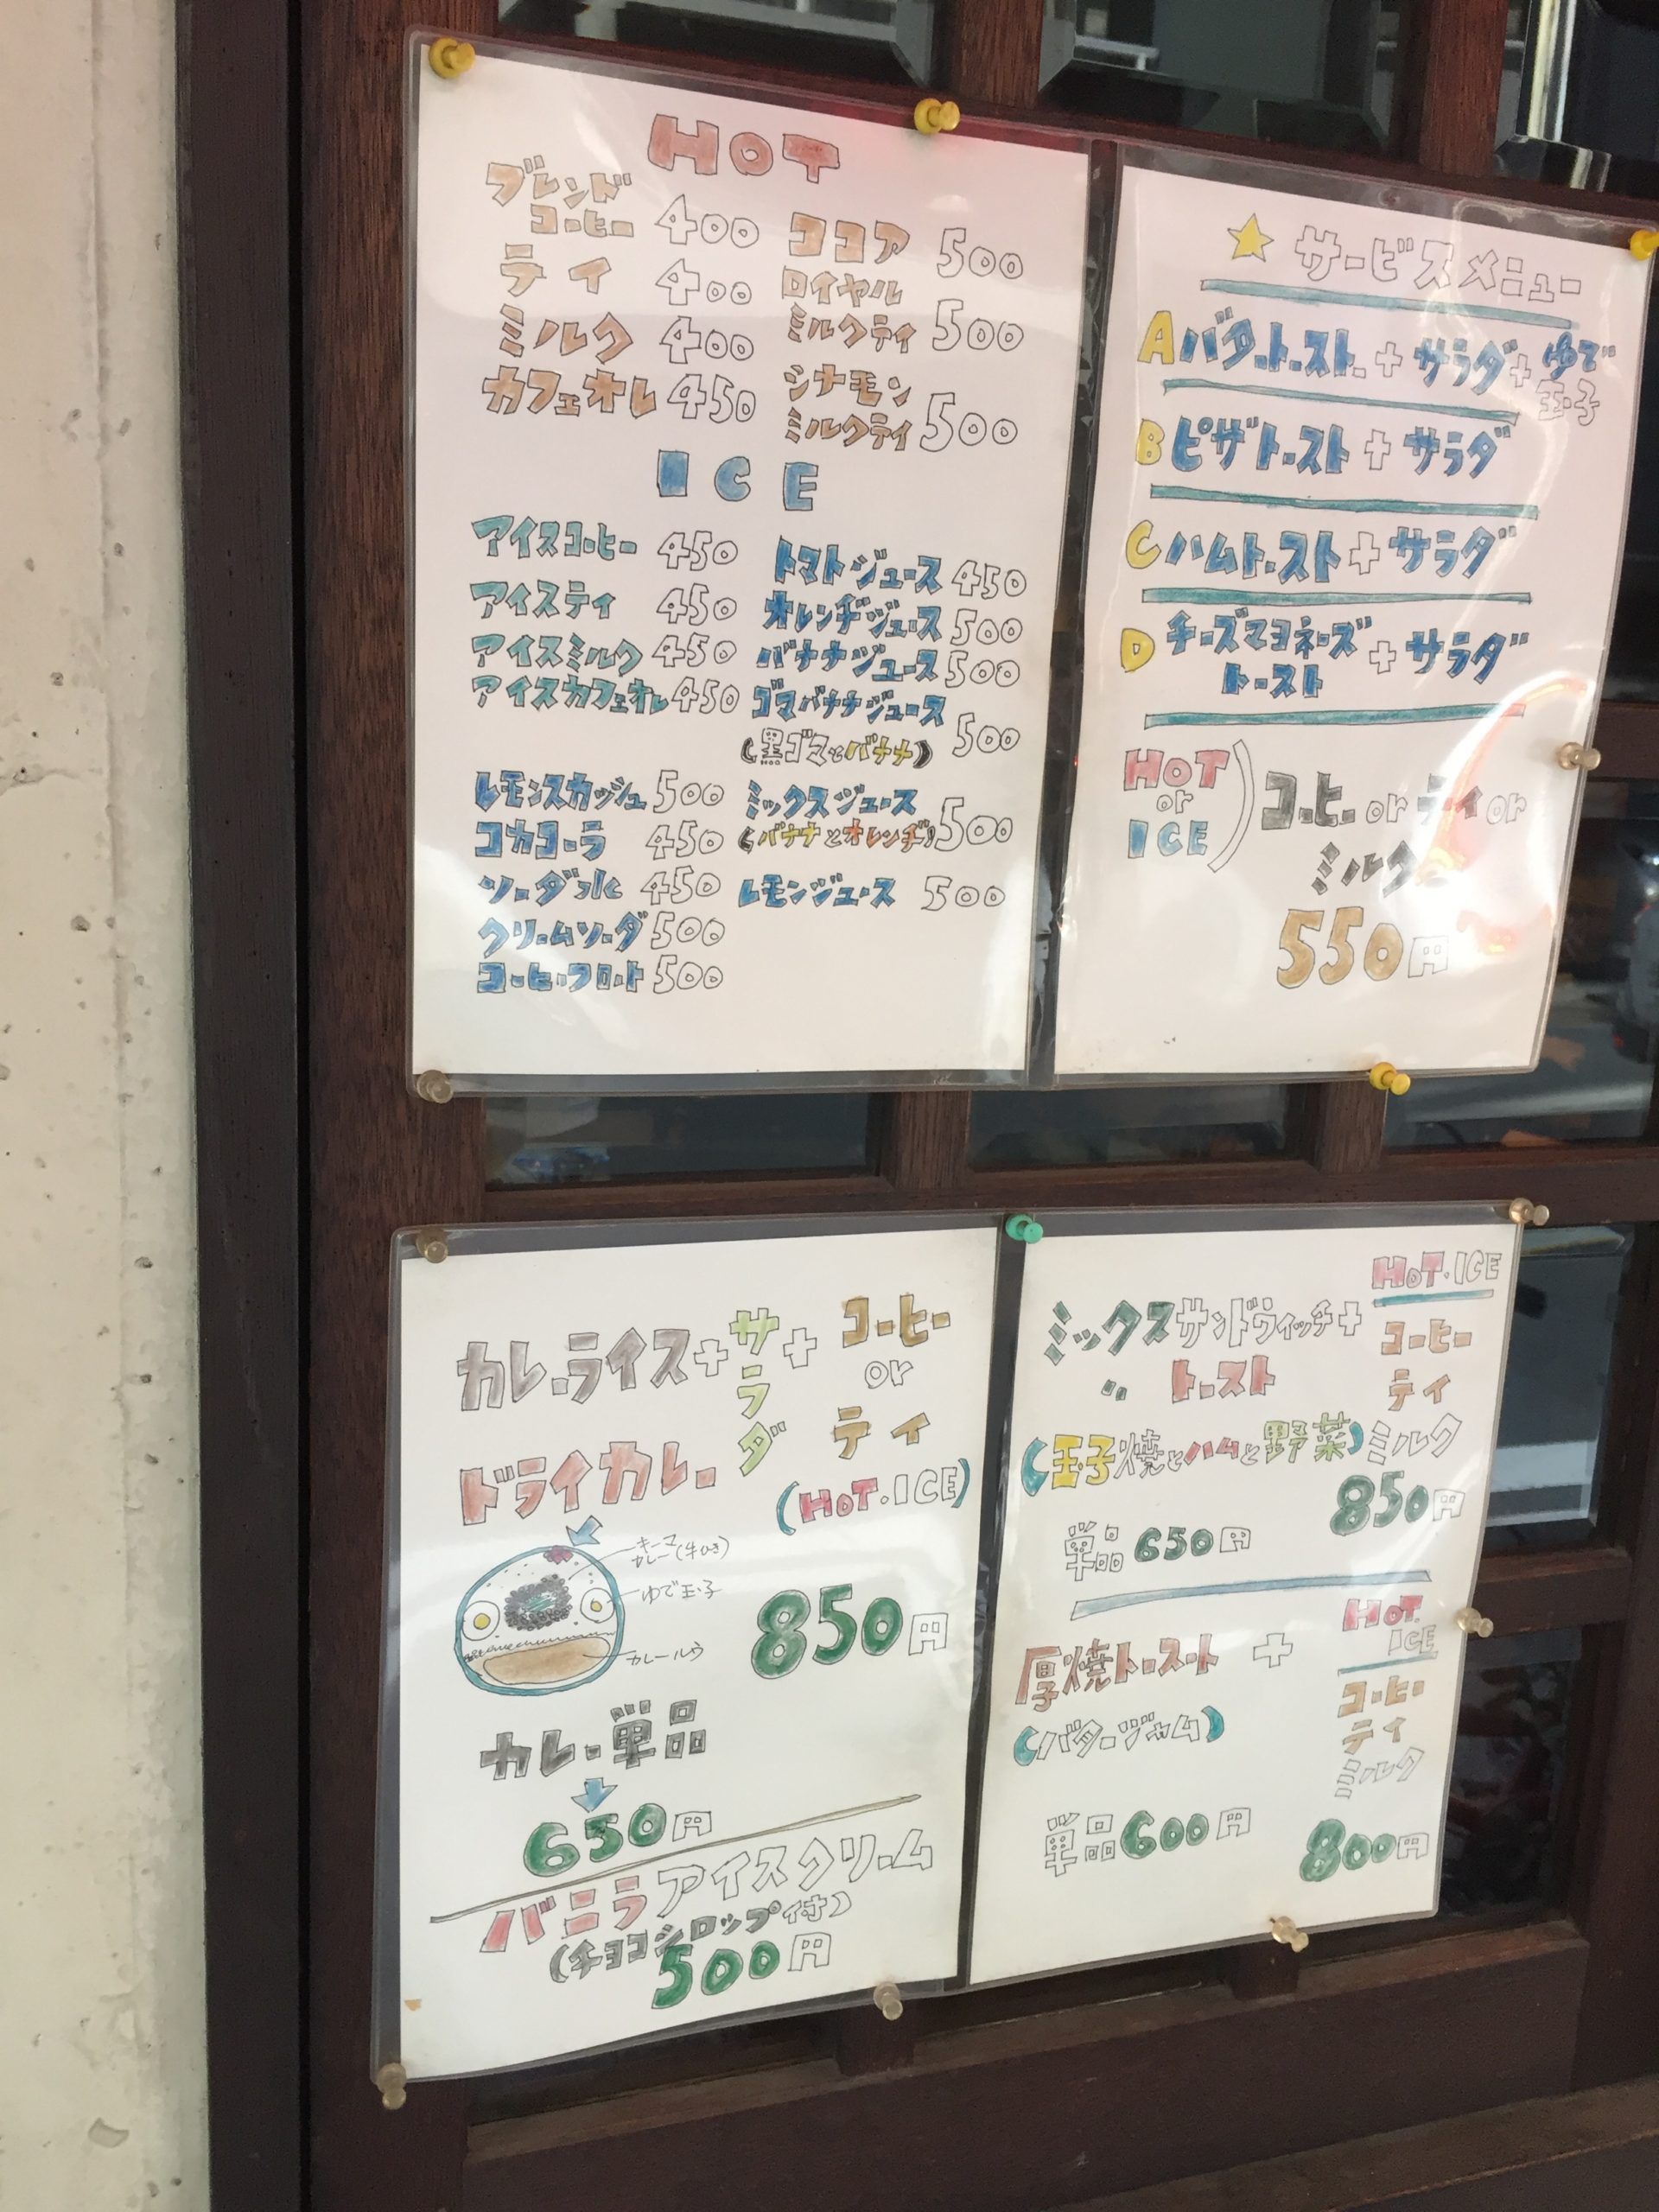 HOT
ブレンド
コーヒー 400
ティ 400
ミルク 400
カフェオレ 450
ココア 500
ロイヤル
ミルクティ 500
シナモン
ミルクティ 500
ICE
アイスコーヒー 450
アイスティ 450
アイスミルク 450
アイスカフェオレ 450
レモンスカッシュ 500
コカコーラ 450
ソーダ水 450
クリームソーダ 500
コーヒーフロート 500
トマトジュース 450
オレンヂジュース 500
バナナジュース 500
ゴマバナナジュース
(黒ゴマとバナナ) 500
ミックスジュース
(バナナとオレンヂ) 500
レモンジュース 500
サービスメニュー
A バタートースト + サラダ + ゆで
玉子
B ピザトースト + サラダ
C ハムトースト + サラダ
D チーズマヨネーズ + サラダ
トースト
HOT
or
ICE
) コーヒー or ティ or
ミルク
550円
カレーライス + サラダ + コーヒー
or
ティ
ドライカレー
(HOT・ICE)
キーマ
カレー(牛ひき)
ゆで玉子
カレールウ
850円
カレー単品
650円
バニラアイスクリーム
(チョコシロップ付)
500円
HOT・ICE
ミックスサンドウィッチ +
〃 トースト
コーヒー
ティ
(玉子焼とハムと野菜) ミルク
850円
単品 650円
HOT・
ICE
厚焼トースト +
(バター・ジャム)
コーヒー
ティ
ミルク
単品 600円
800円